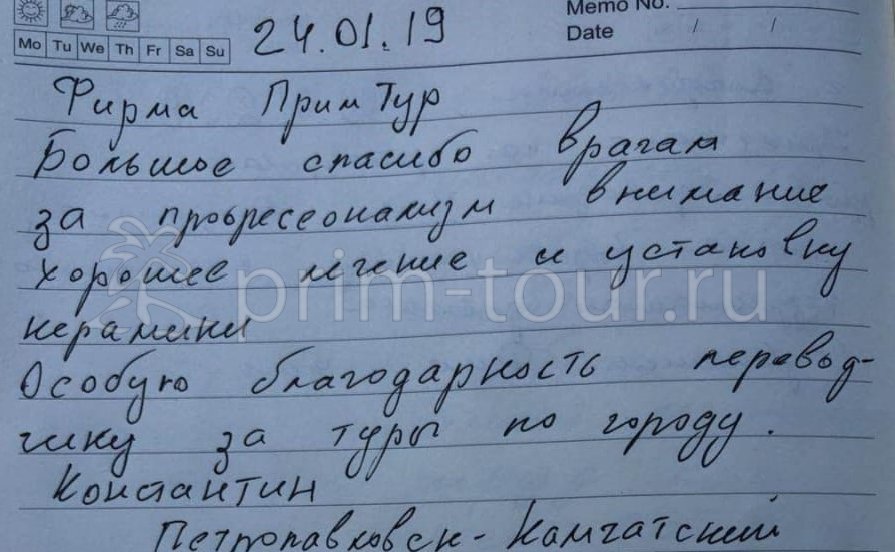 Memo No.
Mo Tu We Th Fr Sa Su
24.01.19
Date / /
Фирма ПримТур
Большое спасибо врачам
за профессеонализм внимание
хорошее лечение и установку
керамики
prim-tour.ru
Особую благодарность перевод-
чику за туры по городу.
Константин
Петропавловск-Камчатский